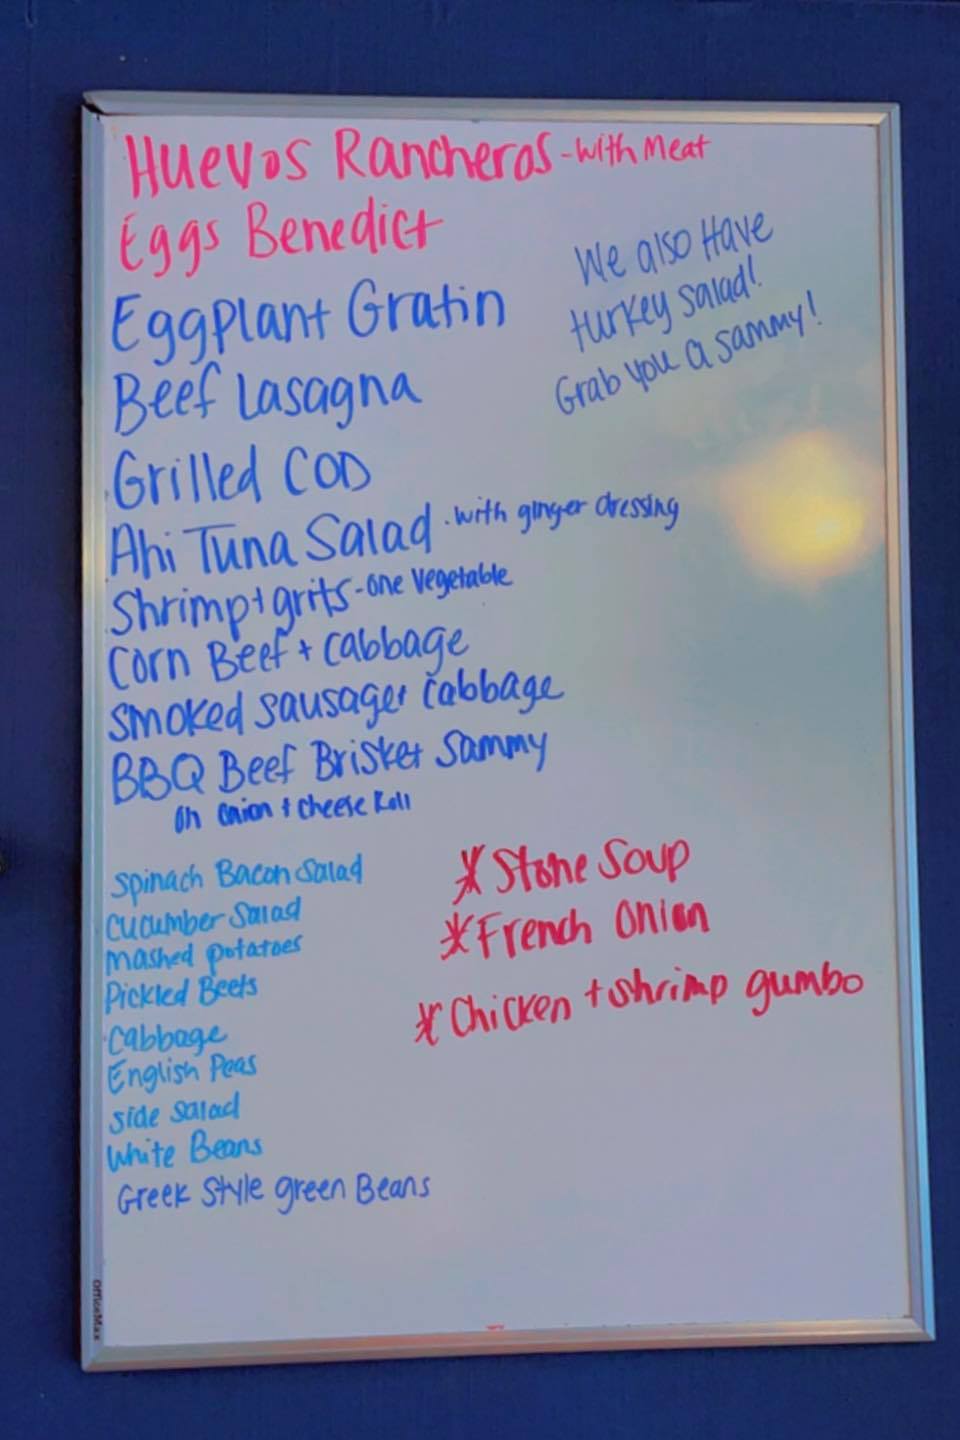 Huevos Rancheros - with Meat
Eggs Benedict
We also Have
turkey salad!
Grab you a sammy!
Eggplant Gratin
Beef Lasagna
Grilled COD
Ahi Tuna Salad - with ginger dressing
Shrimp + grits - one vegetable
Corn Beef + cabbage
Smoked sausage + cabbage
BBQ Beef Brisket Sammy
On onion + cheese Roll
Spinach Bacon Salad
Cucumber Salad
Mashed potatoes
Pickled Beets
Cabbage
English Peas
side salad
White Beans
Greek Style green Beans
* Stone Soup
* French Onion
* Chicken + shrimp gumbo
OfficeMax